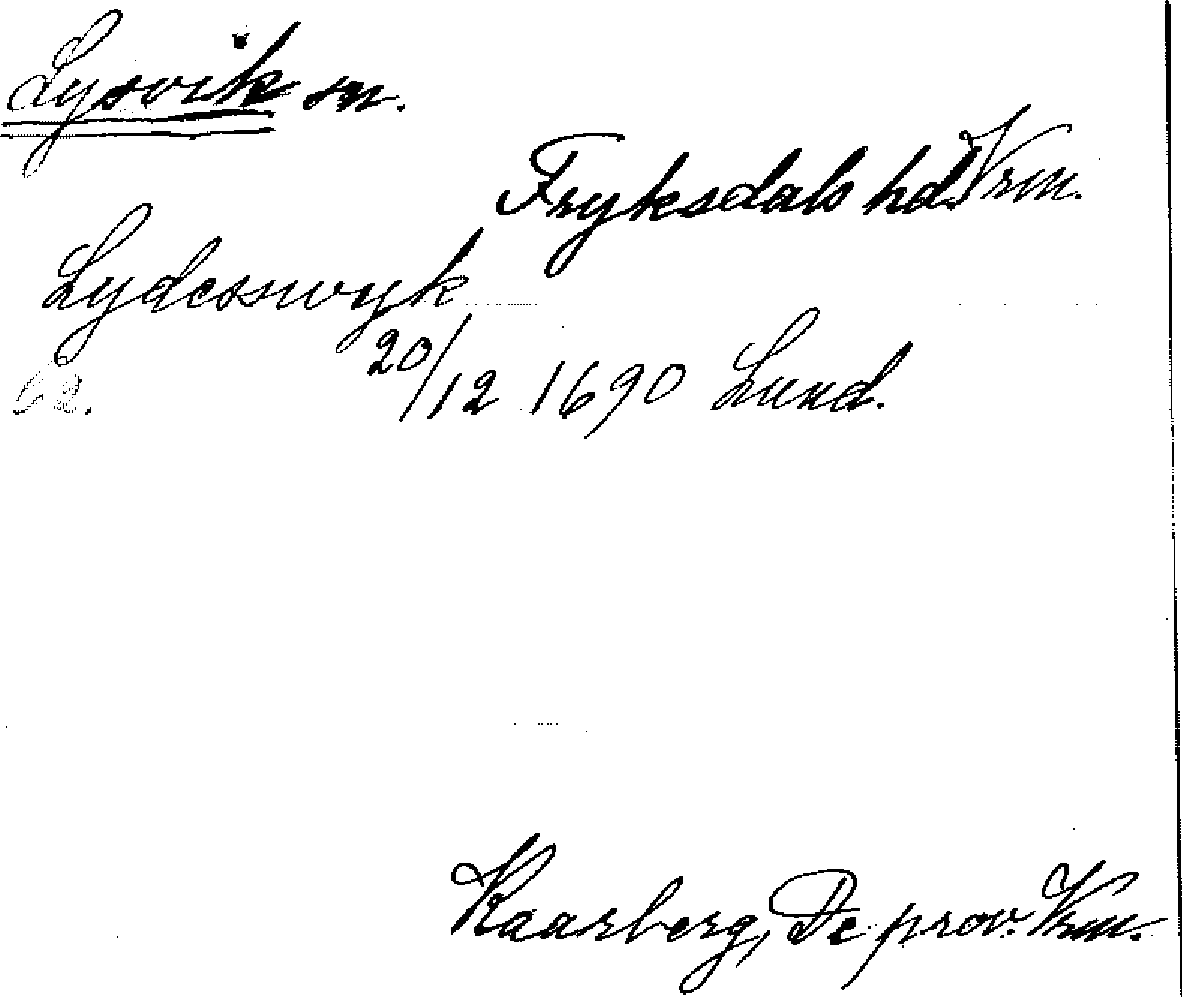 Lysvik sn.
Fryksdals hd. Vrm.
Lydesswyk
62. 20/12 1690 Lund.
Kaarberg, De prov. Vrm.